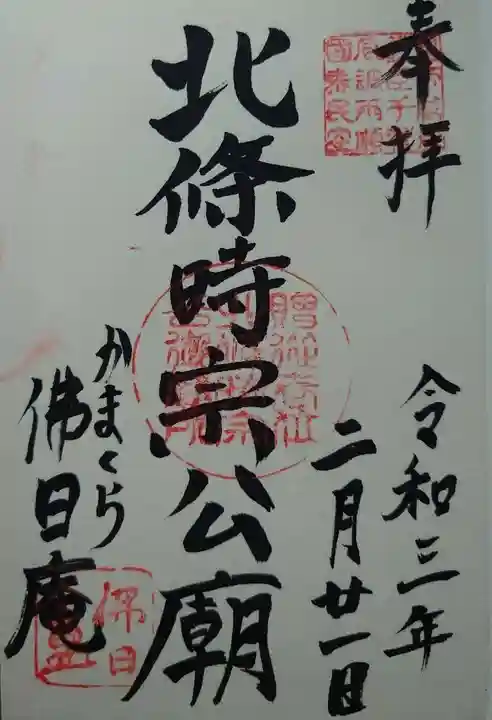 奉拝
令和三年
二月廿一日
北條時宗公廟
かまくら
佛日庵